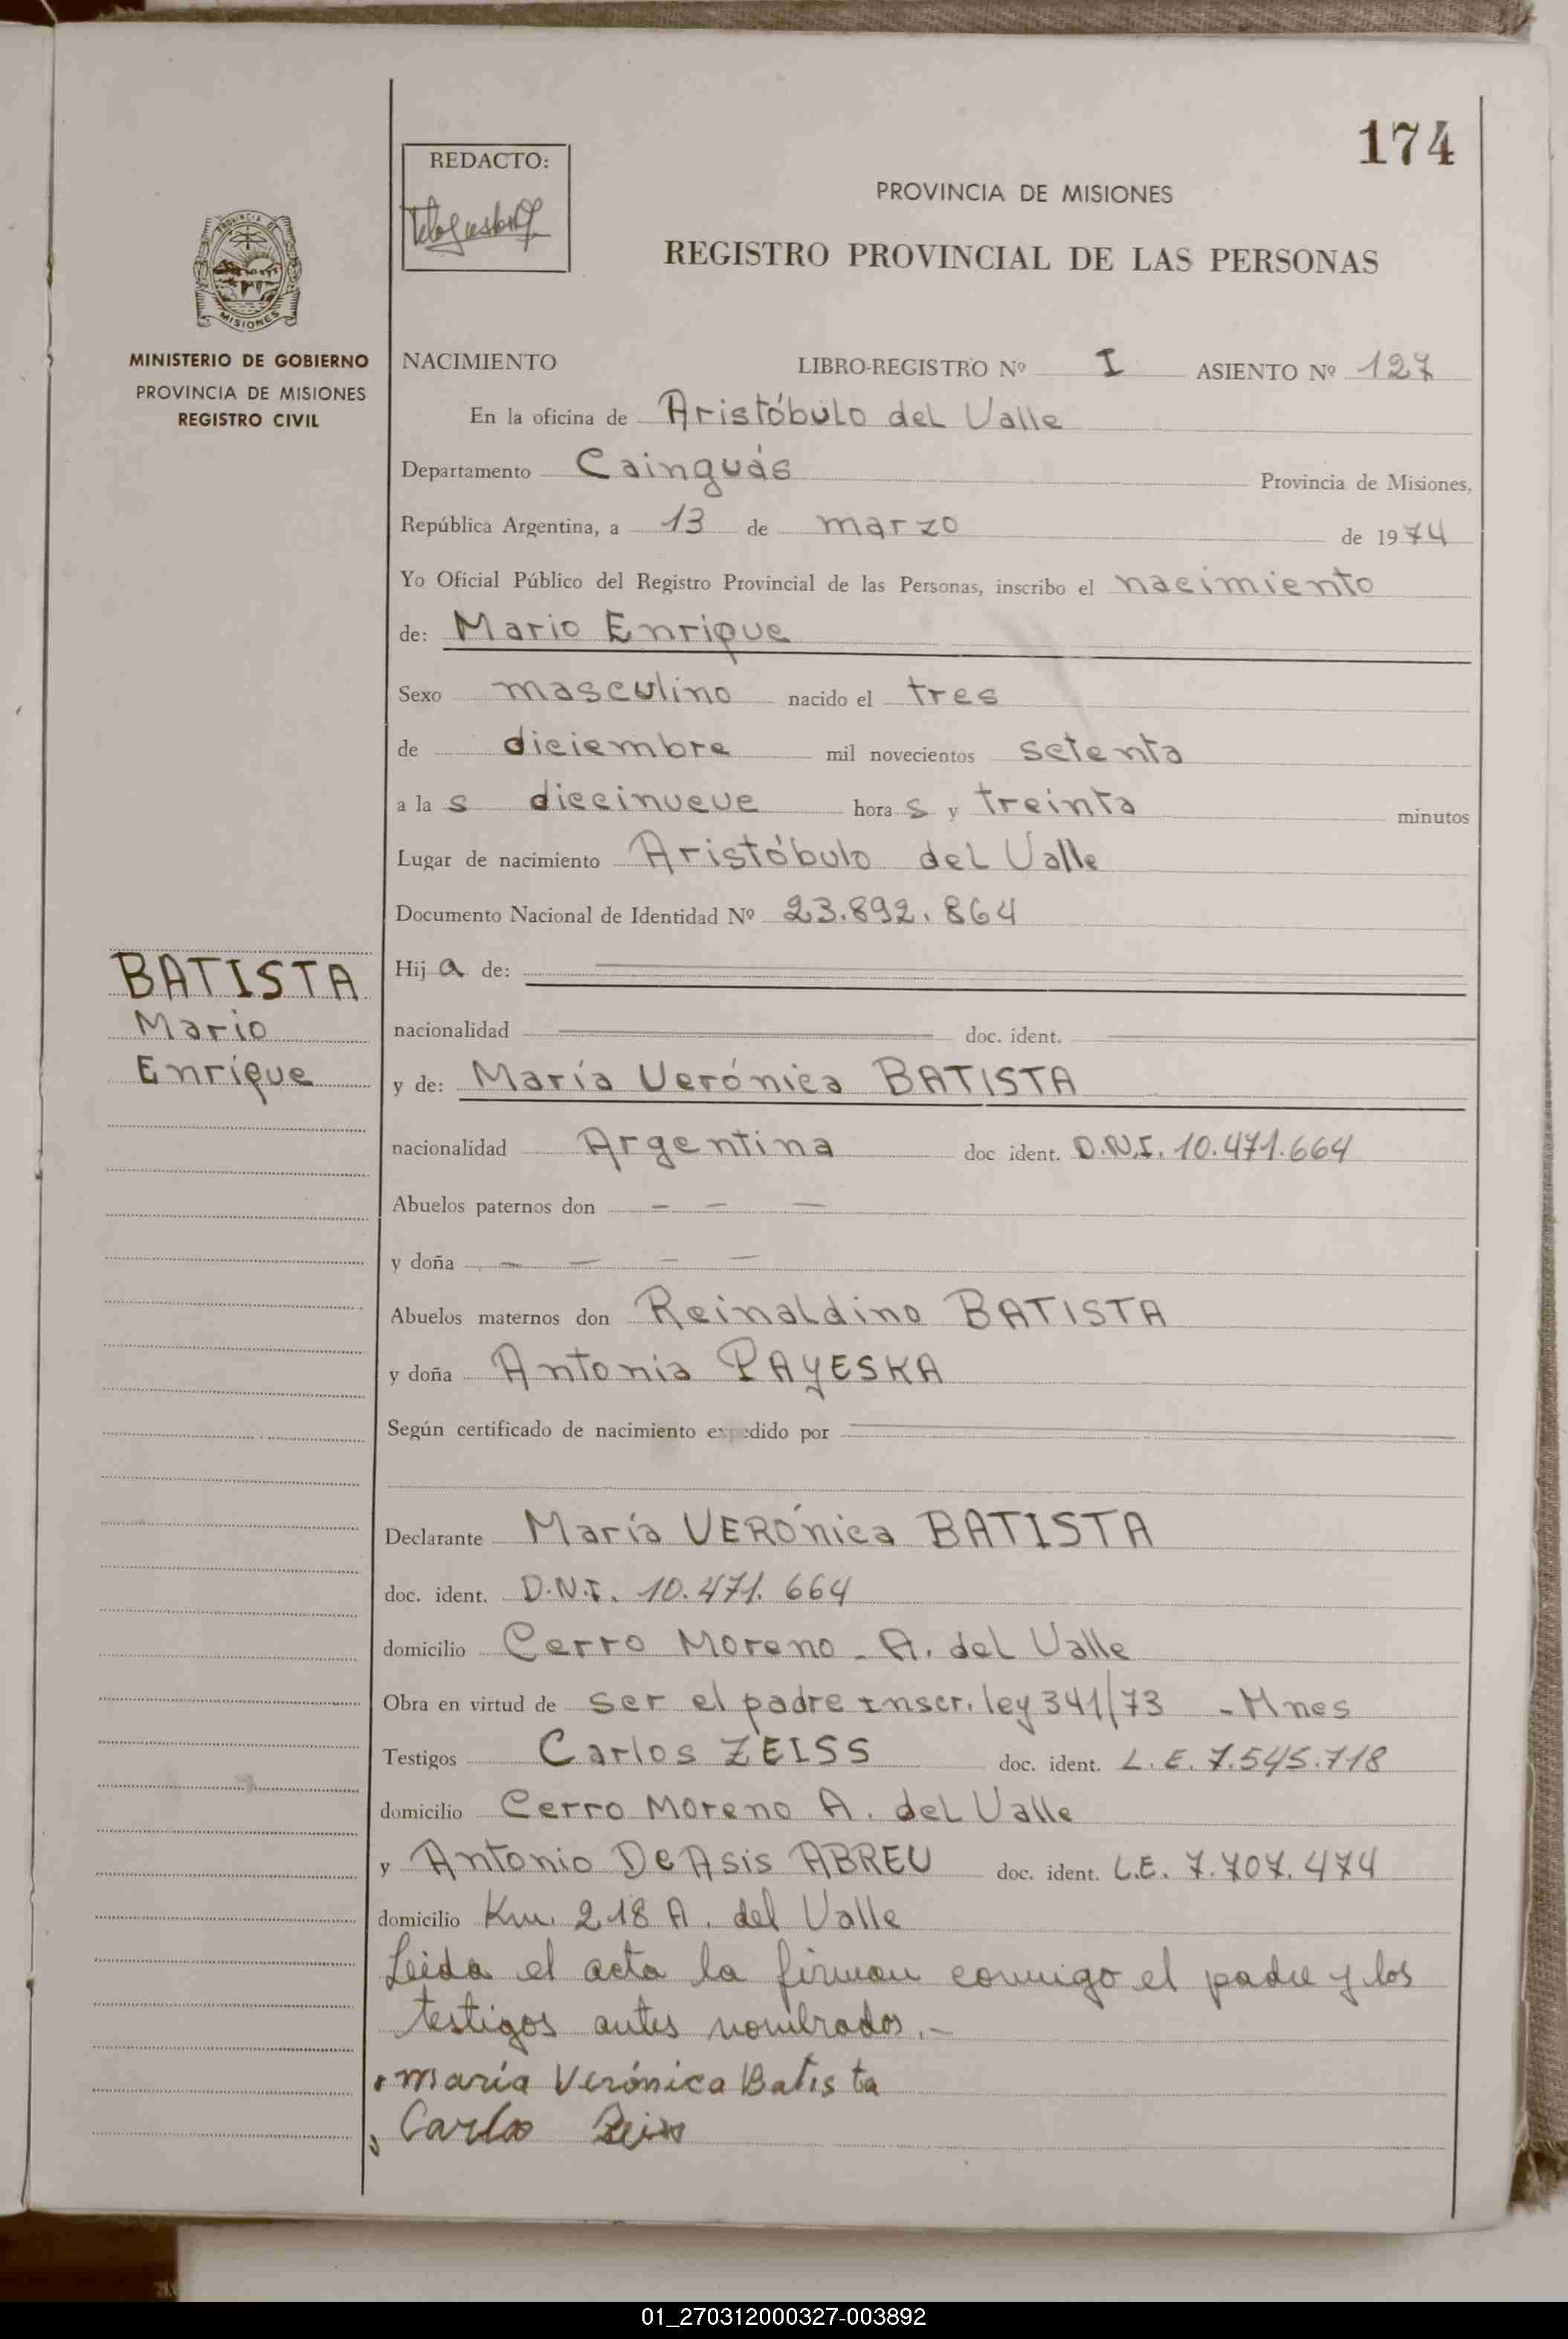 174
REDACTO:
PROVINCIA DE MISIONES
REGISTRO PROVINCIAL DE LAS PERSONAS
PROVINCIA DE
MISIONES
MINISTERIO DE GOBIERNO
PROVINCIA DE MISIONES
REGISTRO CIVIL
NACIMIENTO LIBRO-REGISTRO Nº I ASIENTO Nº 127
En la oficina de Aristóbulo del Valle
Departamento Cainguás Provincia de Misiones,
República Argentina, a 13 de marzo de 1974
Yo Oficial Público del Registro Provincial de las Personas, inscribo el nacimiento
de: Mario Enrique
Sexo masculino nacido el tres
de diciembre mil novecientos setenta
a la s diecinueve hora s y treinta minutos
Lugar de nacimiento Aristóbulo del Valle
Documento Nacional de Identidad Nº 23.892.864
BATISTA
Mario
Enrique
Hij a de:
nacionalidad doc. ident.
y de: María Verónica BATISTA
nacionalidad Argentina doc ident. D.N.I. 10.471.664
Abuelos paternos don - - -
y doña - - - -
Abuelos maternos don Reinaldino BATISTA
y doña Antonia PAYESKA
Según certificado de nacimiento expedido por
Declarante María VERÓnica BATISTA
doc. ident. D.N.I. 10.471.664
domicilio Cerro Moreno - A. del Valle
Obra en virtud de ser el padre inscr. ley 341/73 - Mnes
Testigos Carlos ZEISS doc. ident. L.E. 7.545.718
domicilio Cerro Moreno A. del Valle
y Antonio De Asis ABREU doc. ident. L.E. 7.707.474
domicilio Km. 218 A. del Valle
Leida el acta la firman conmigo el padre y los
testigos antes nombrados.-
María Verónica Batista
Carlos Zeiss
01_270312000327-003892